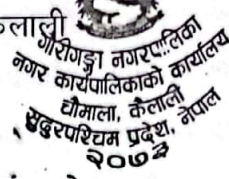 लाली
गौरीगङ्गा नगरपालिका
नगर कार्यपालिकाको कार्यालय
चौमाला, कैलाली
सुदुरपश्चिम प्रदेश, नेपाल
२०७३